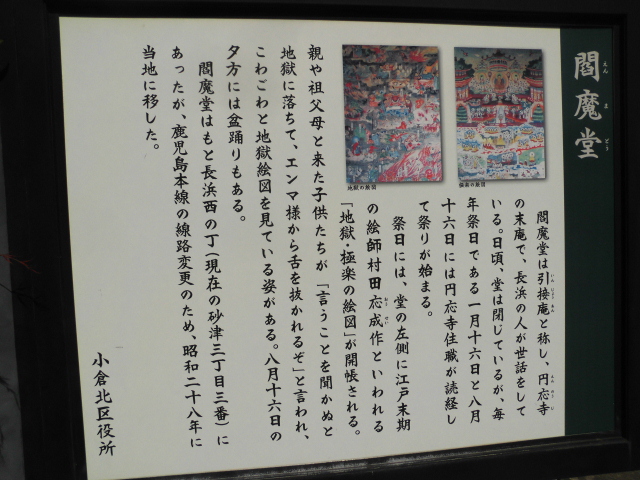 閻魔堂
えんまどう
閻魔堂は引接庵と称し、円応寺
いんじょうあん
えんのうじ
の末庵で、長浜の人が世話をして
いる。日頃、堂は閉じているが、毎
年祭日である一月十六日と八月
十六日には円応寺住職が読経し
て祭りが始まる。
祭日には、堂の左側に江戸末期
の絵師村田応成作といわれる
おうせい
「地獄・極楽の絵図」が開帳される。
親や祖父母と来た子供たちが「言うことを聞かぬと
地獄に落ちて、エンマ様から舌を抜かれるぞ」と言われ、
こわごわと地獄絵図を見ている姿がある。八月十六日の
夕方には盆踊りもある。
閻魔堂はもと長浜西の丁（現在の砂津三丁目三番）に
あったが、鹿児島本線の線路変更のため、昭和二十八年に
当地に移した。
小倉北区役所
極楽の絵図
地獄の絵図